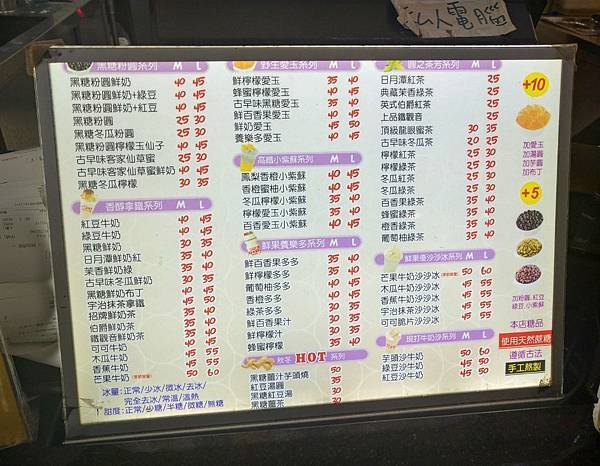 以電腦
黑糖粉圓系列 M L
黑糖粉圓鮮奶 40 45
黑糖粉圓鮮奶+綠豆 40 45
黑糖粉圓鮮奶+紅豆 40 45
黑糖粉圓 25 30
黑糖冬瓜粉圓 25 30
黑糖粉圓檸檬玉仙子 40 45
古早味客家仙草蜜 25 30
古早味客家仙草蜜鮮奶 40 45
黑糖冬瓜檸檬 30 35
香醇拿鐵系列 M L
紅豆牛奶 40 45
綠豆牛奶 40 45
黑糖鮮奶 30 35
日月潭鮮奶紅 35 40
茉香鮮奶綠 35 40
古早味冬瓜鮮奶 30 35
黑糖鮮奶布丁 40 45
宇治抹茶拿鐵 45 50
招牌鮮奶茶 35 40
伯爵鮮奶茶 35 40
鐵觀音鮮奶茶 35 40
可可牛奶 45 50
木瓜牛奶 45 55
香蕉牛奶 45 55
芒果牛奶 50 55
冰量:正常/少冰/微冰/去冰/
完全去冰/常溫/溫熱
甜度:正常/少糖/半糖/微糖/無糖
野生愛玉系列 M L
鮮檸檬愛玉 35 40
蜂蜜檸檬愛玉 40 45
古早味黑糖愛玉 35 40
鮮百香果愛玉 40 45
鮮奶愛玉 45 50
養樂多愛玉 40 45
高纖小紫蘇系列
鳳梨香橙小紫蘇 40 45
香橙蜜柚小紫蘇 40 45
冬瓜檸檬小紫蘇 35 40
檸檬愛玉小紫蘇 40 45
冬瓜愛玉小紫蘇 40 45
鮮果養樂多系列 M L
鮮百香果多多 35 40
鮮檸檬多多 35 40
葡萄柚多多 35 40
香橙多多 35 40
綠茶多多 30 35
鮮百香果汁 30 35
鮮檸檬汁 30 35
蜂蜜檸檬 35 40
秋冬 HOT 系列
黑糖薑汁芋頭燒 50
紅豆湯圓 35
黑糖紅豆湯 30
黑糖薑茶 30
圓之茶芳系列 M L
日月潭紅茶 25
典藏茉香綠茶 25
英式伯爵紅茶 25
上品鐵觀音 25
頂級龍眼蜜茶 30 35
古早味冬瓜茶 20 25
檸檬紅茶 25 30
檸檬綠茶 25 30
冬瓜紅茶 25 30
冬瓜綠茶 25 30
百香果綠茶 30 35
蜂蜜綠茶 30 35
橙香綠茶 30 35
葡萄柚綠茶 30 35
鮮果亟沙沙冰系列 M L
芒果牛奶沙沙冰 50 60
木瓜牛奶沙沙冰 45 55
香蕉牛奶沙沙冰 45 55
宇治抹茶沙沙冰 45 55
可可脆片沙沙冰 45 55
現打牛奶沙系列 M L
芋頭沙牛奶 50 60
綠豆沙牛奶 45 50
紅豆沙牛奶 45 50
+10
加愛玉
加湯圓
加芋圓
加布丁
+5
加粉圓.紅豆
綠豆.小紫蘇
本店糖品
使用天然蔗糖
遵循古法
手工熬製